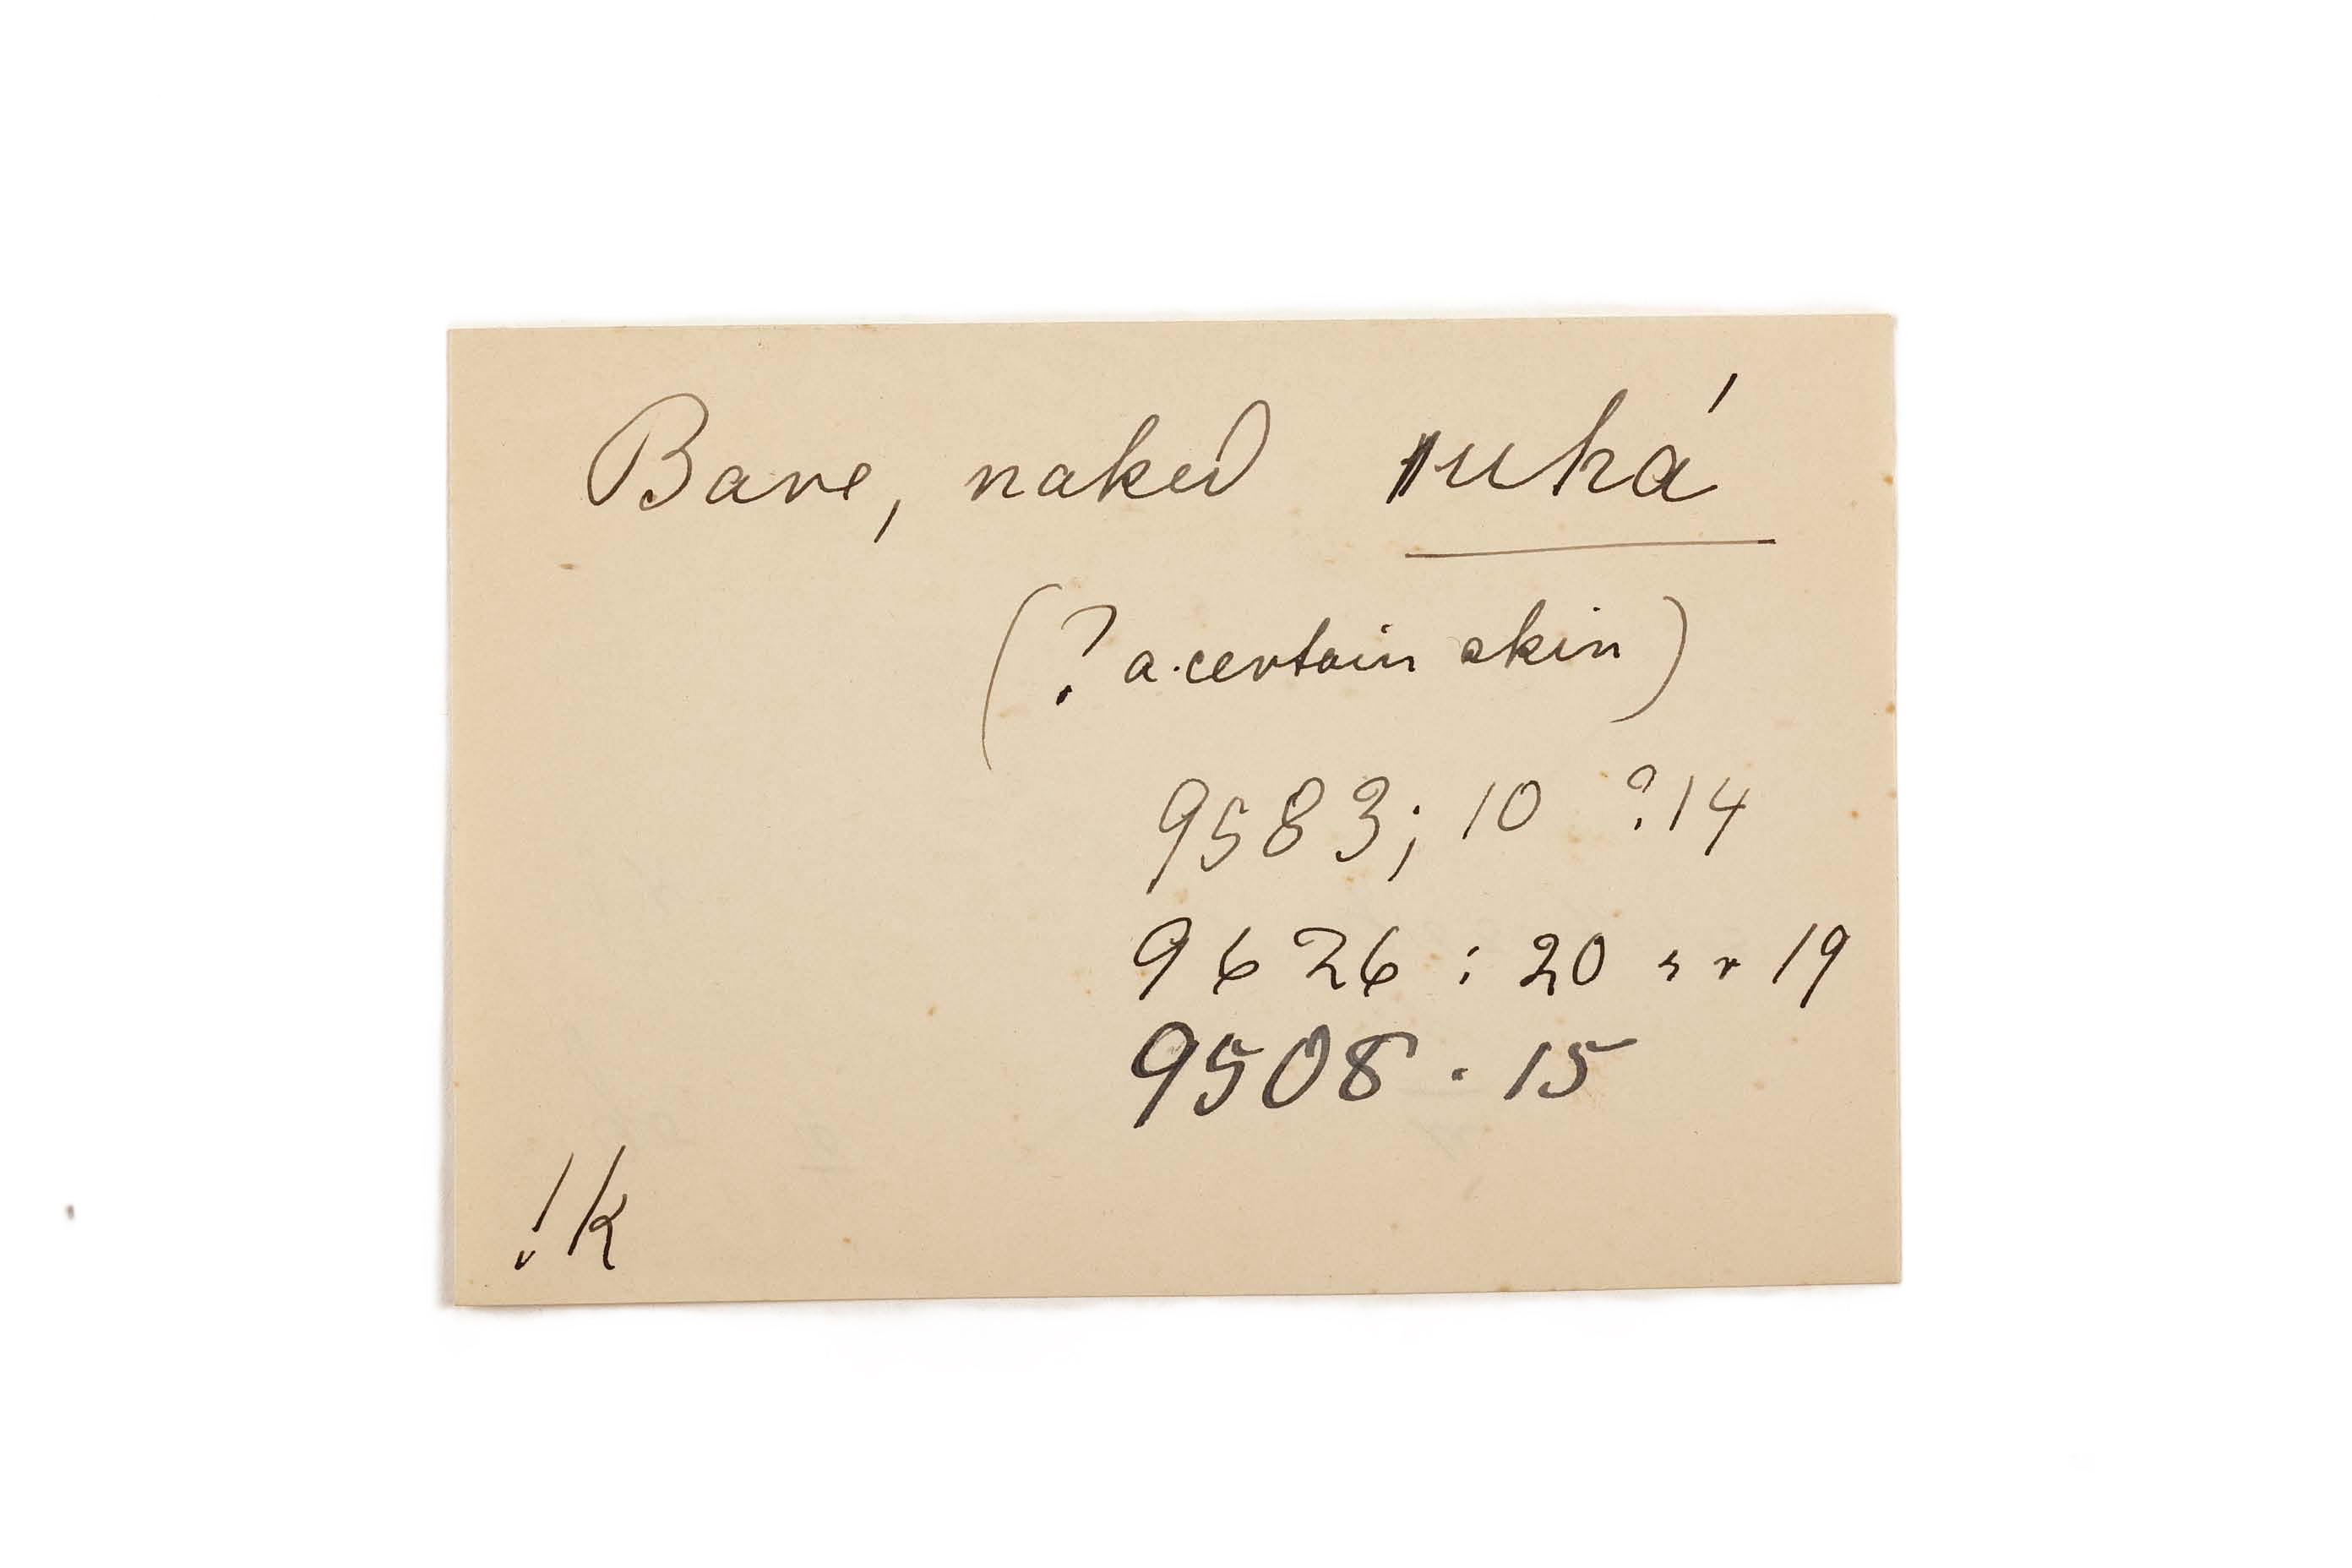 Bare, naked ǁuhá
(? a certain skin)
9583; 10 ?14
9626 : 20 19
9508 . 15
!k